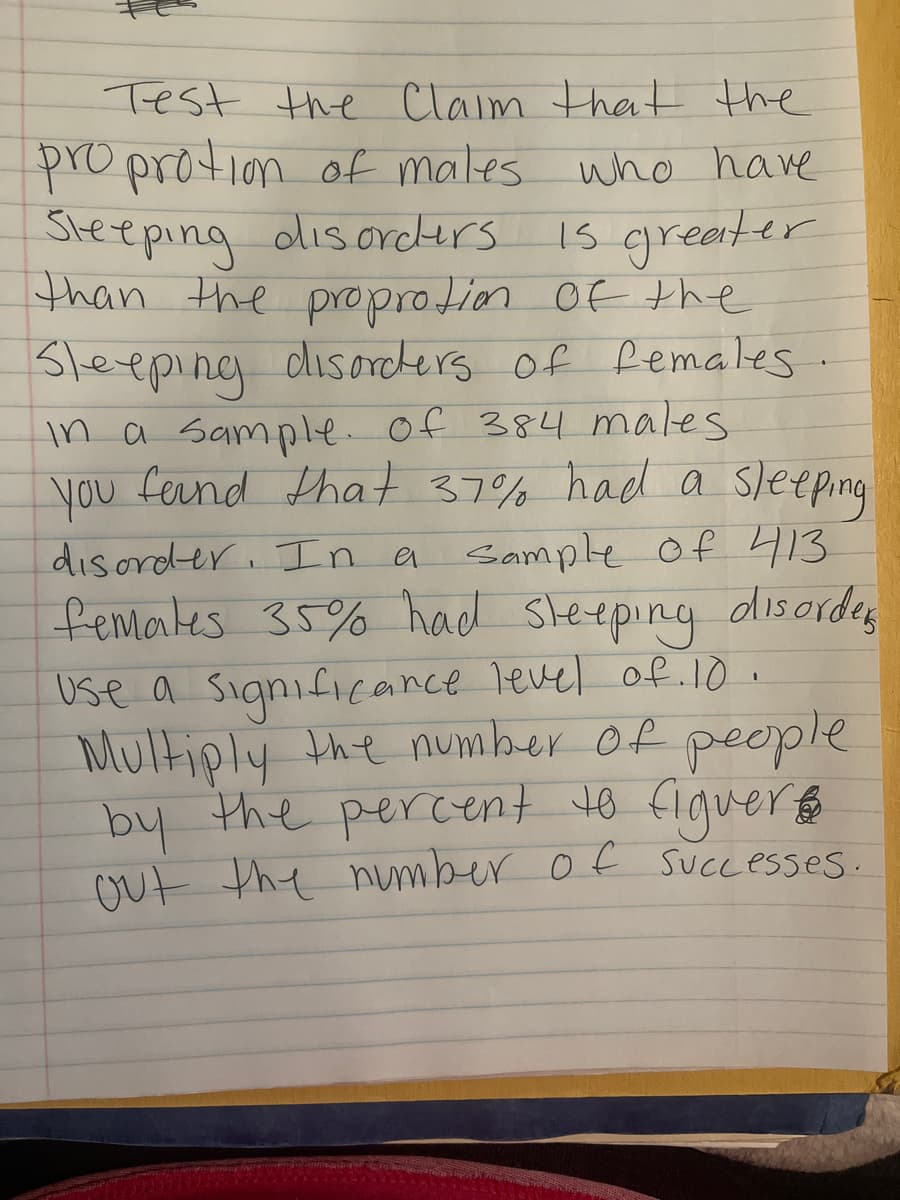 Test the Claim that the
proprotion of males who have
Sleeping disorders is greater
than the proprotion of the
Sleeping disorders of females.
in a sample. of 384 males
you feund that 37% had a sleeping
disorder. In a sample of 413
females 35% had sleeping disorders
use a significance level of .10.
Multiply the number of people
by the percent to figuer
out the number of successes.